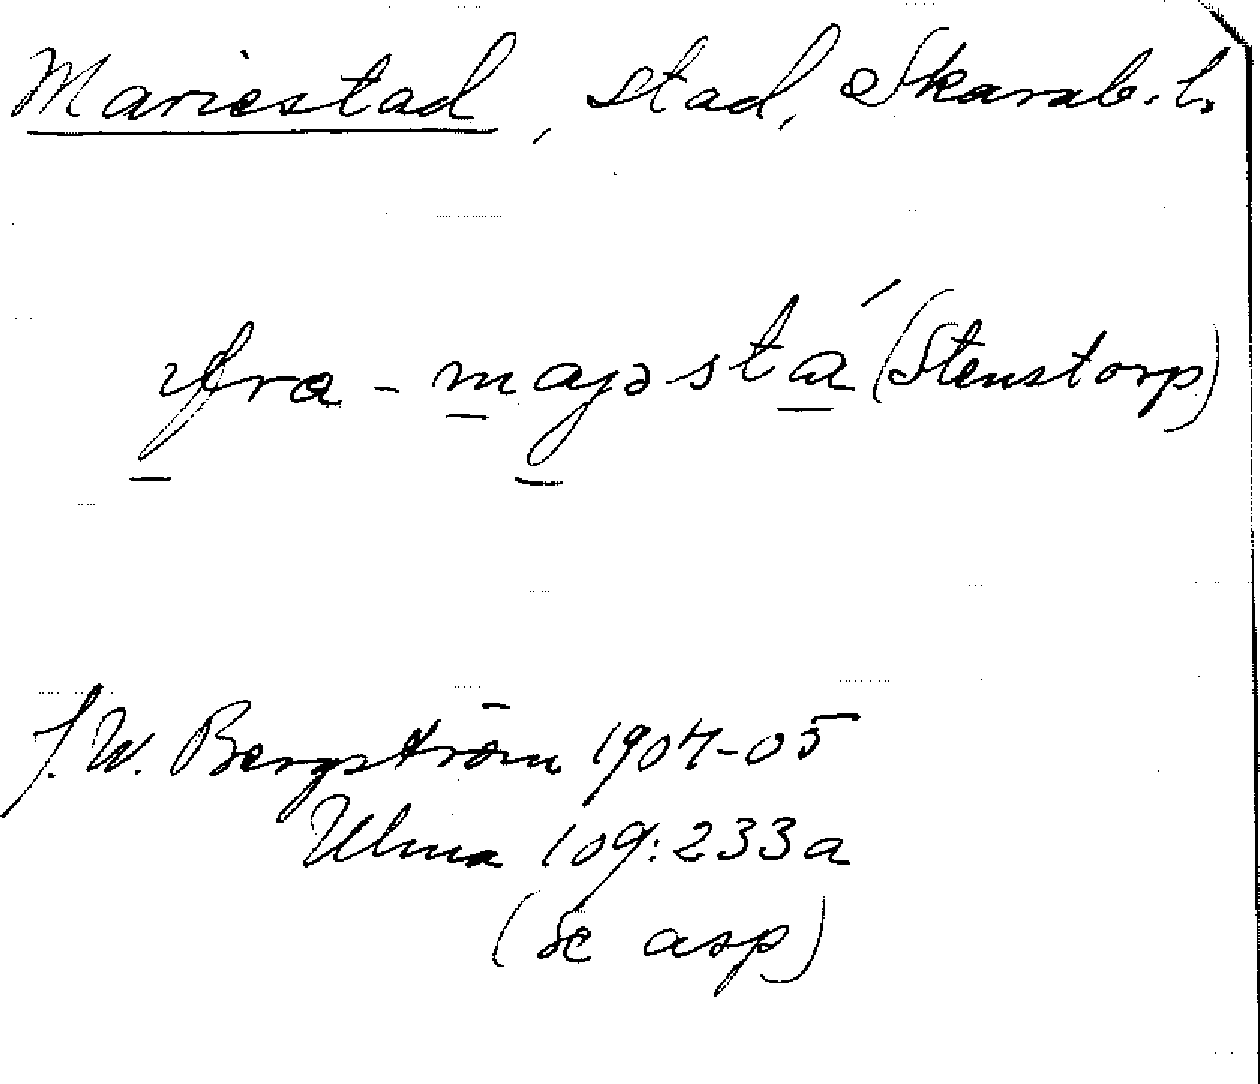 Mariestad, stad, Skarab. l.
fra - majəstá (Stenstorp)
J. W. Bergström 1904-05
Ulma 109:233a
(se asp)